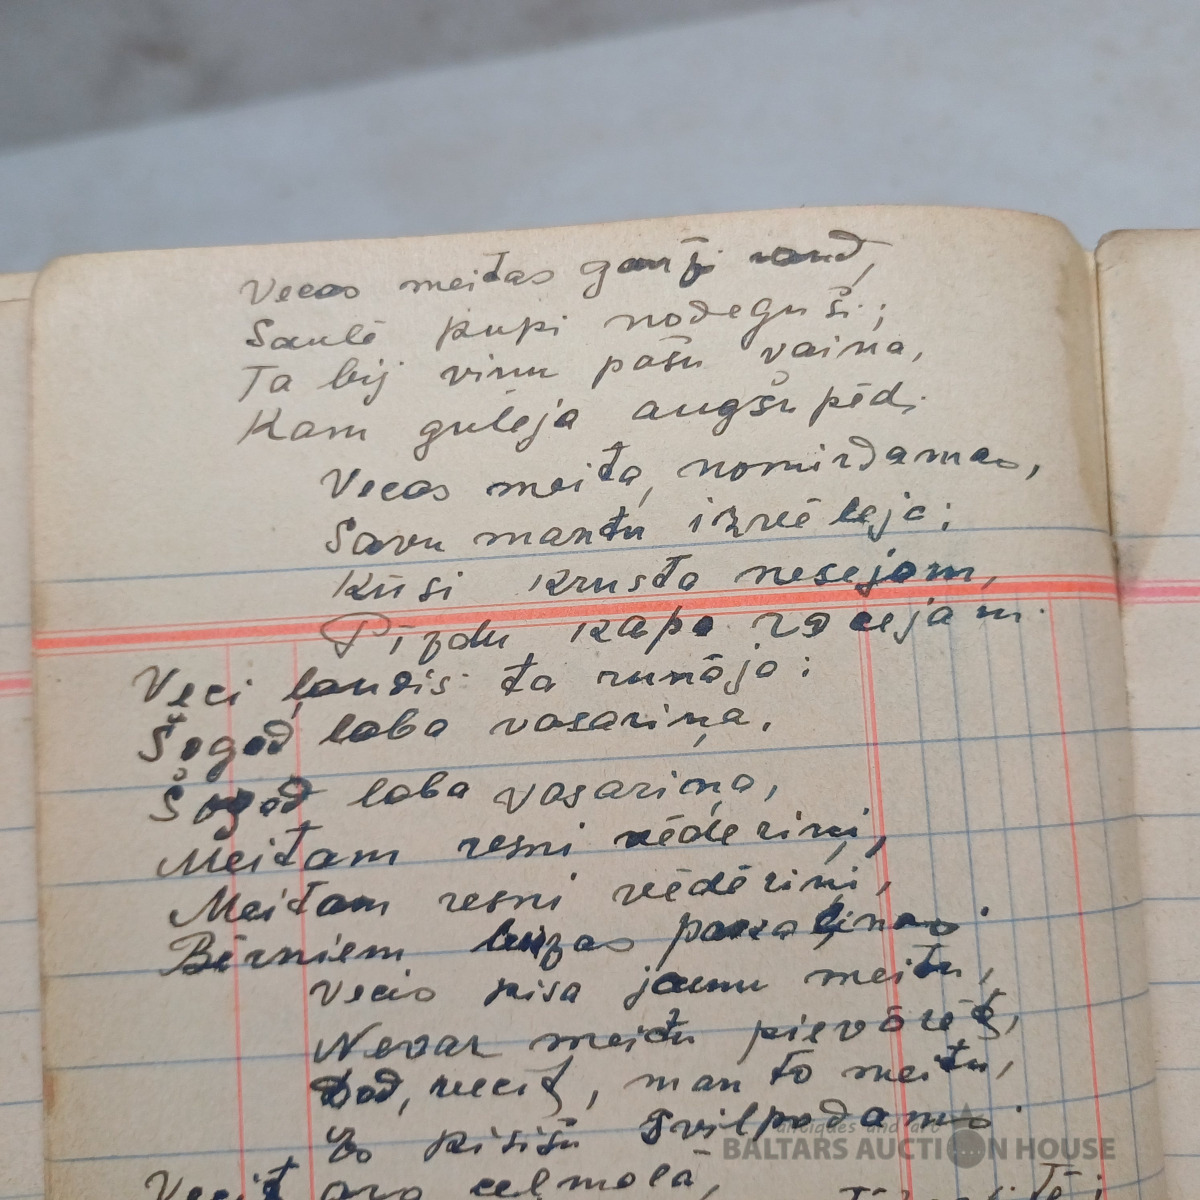 Vecas meitas gauži raud,
Saulē kupi nodeguši;
Ta bij viņu pašu vaina,
Kam gulēja augšu pēdi
Vecas meita, nomirdamas,
Savu mantu izvēlēja;
Kūsi krusta nesējam,
Pīzdu kapa racējam.
Veci ļaudis ta runāja:
Šogad laba vasariņa,
Šogad laba vasariņa,
Meitam resni vēderiņi,
Meitam resni vēdēriņi,
Bērniem buizas pazaļinas.
Vecis pisa jaunu meitu,
Nevar meitu pievārēt,
Dod, vecīt, man to meitu,
Es pisišu švilpodams.
antiques and art
BALTARS AUCTION HOUSE
Vecit ara celmolā,